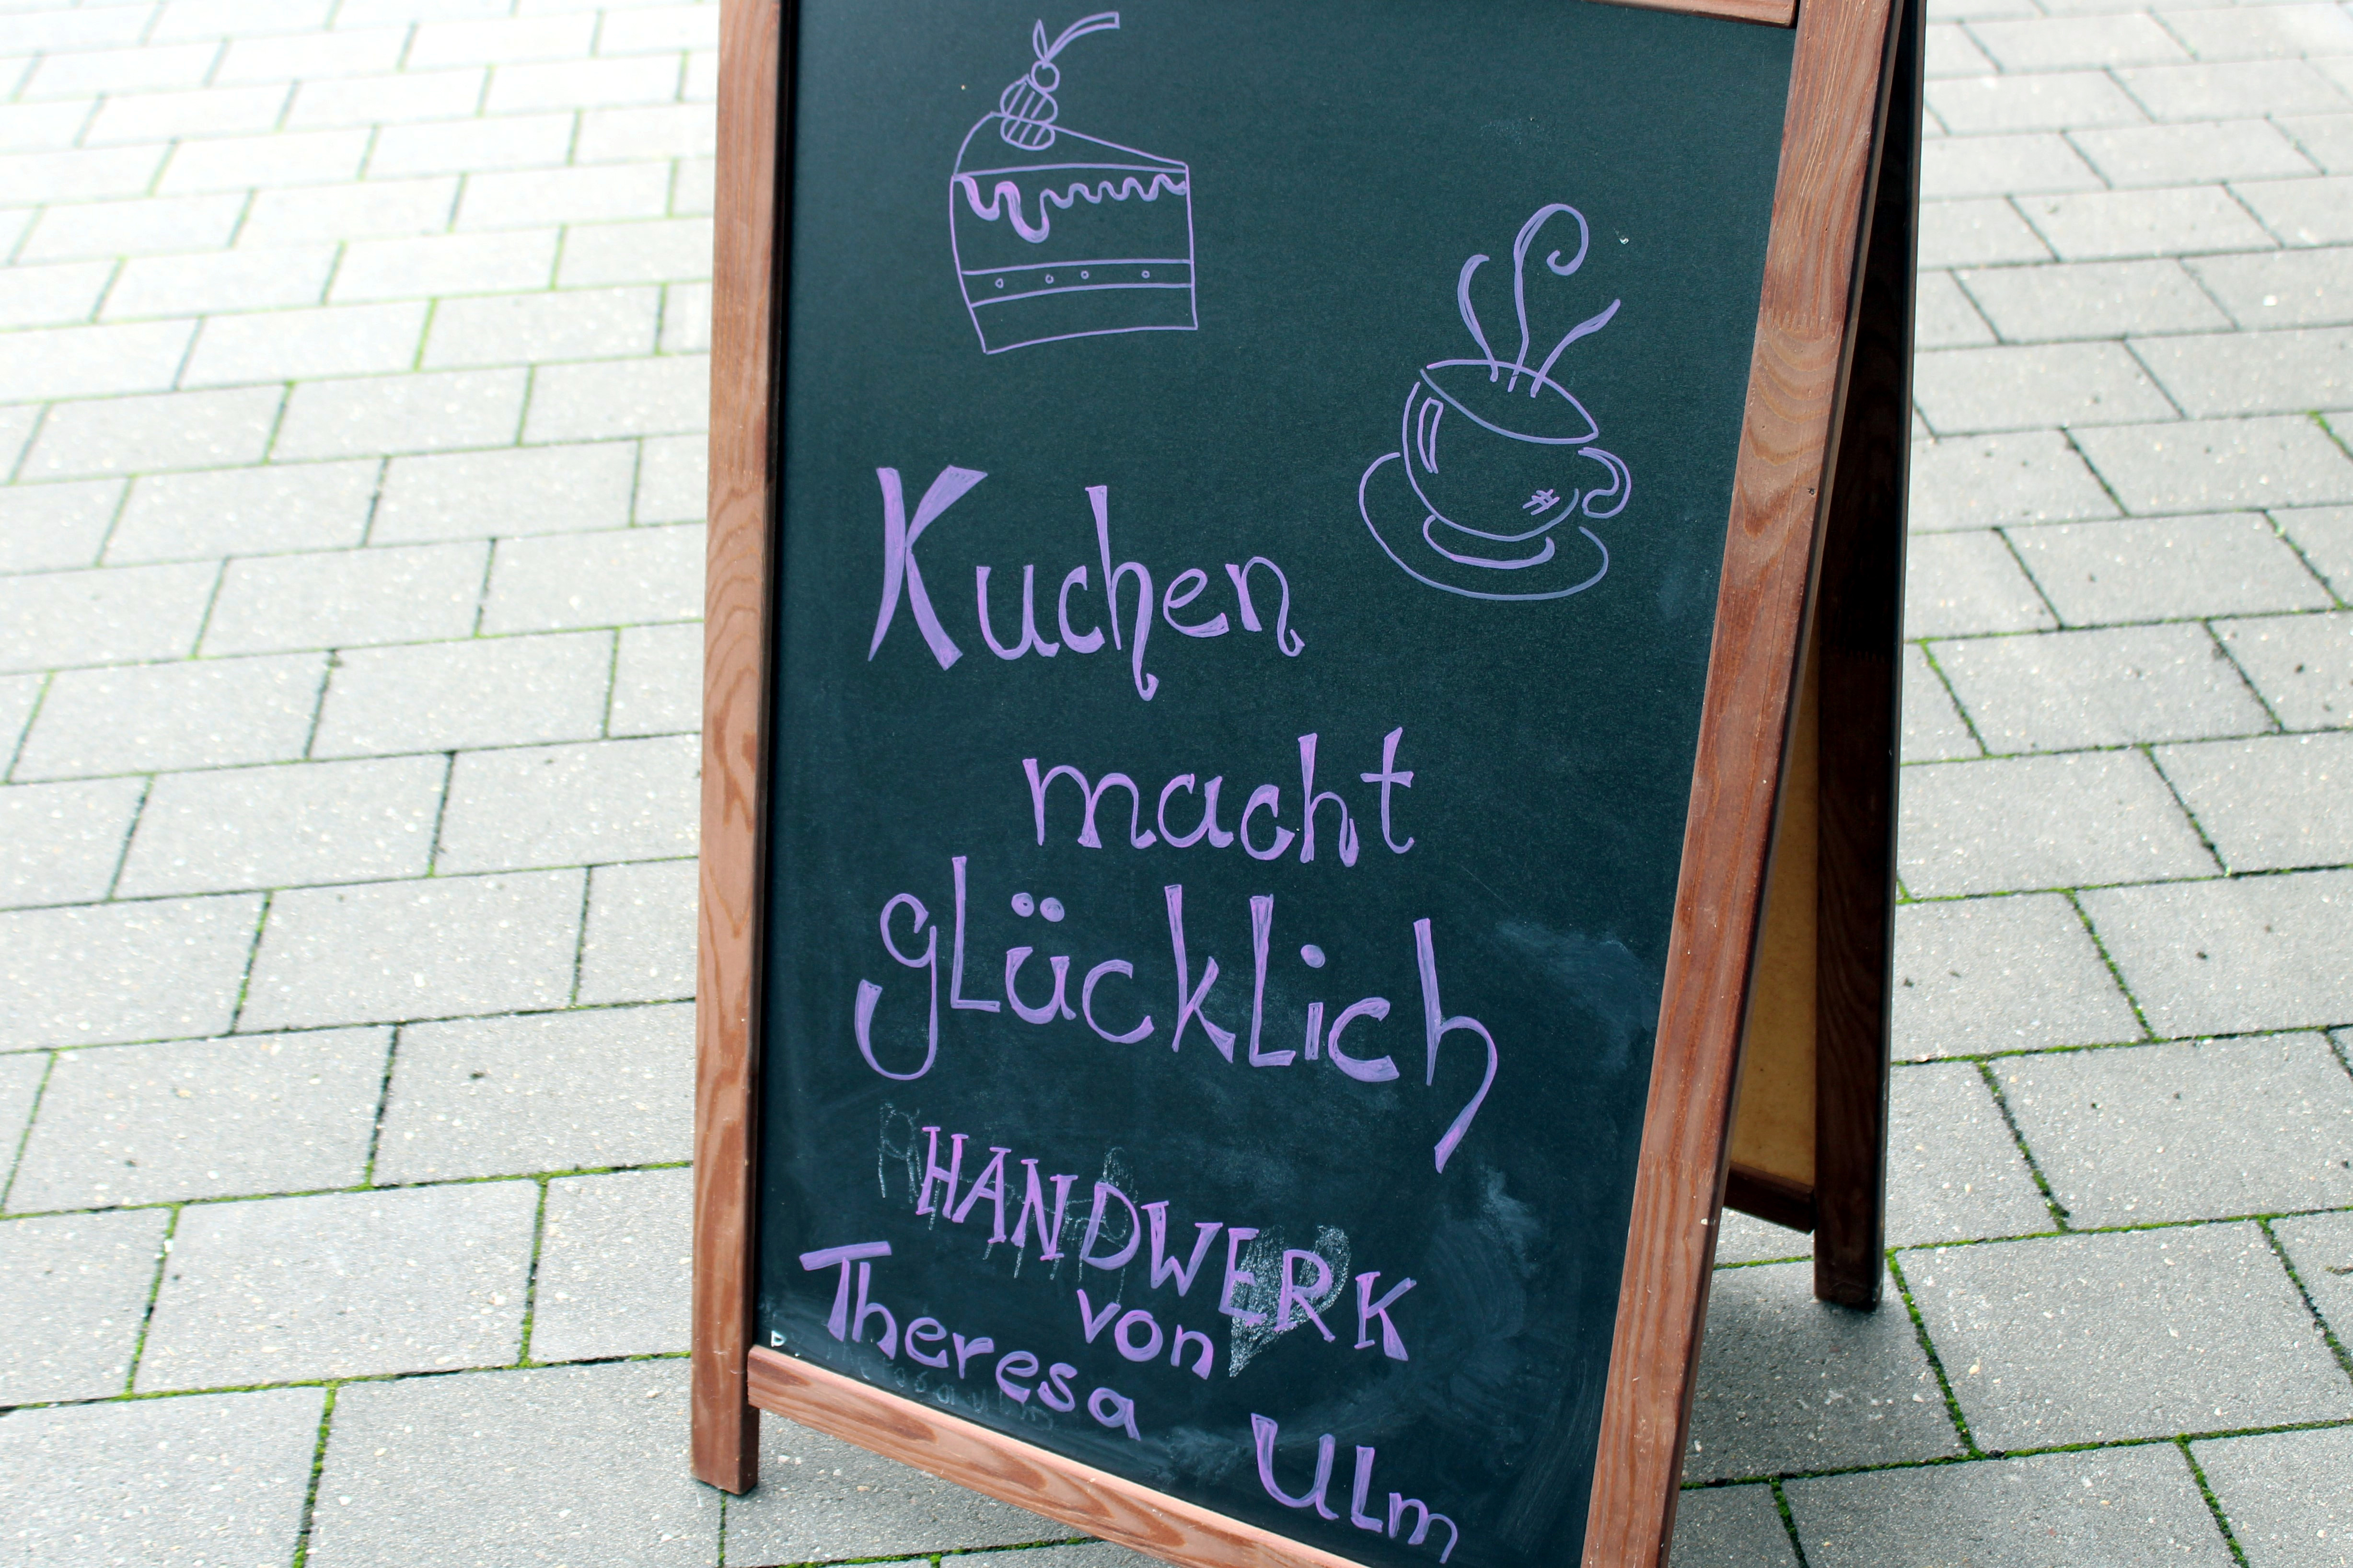 Kuchen
macht
glücklich
HANDWERK
von
Theresa Ulm